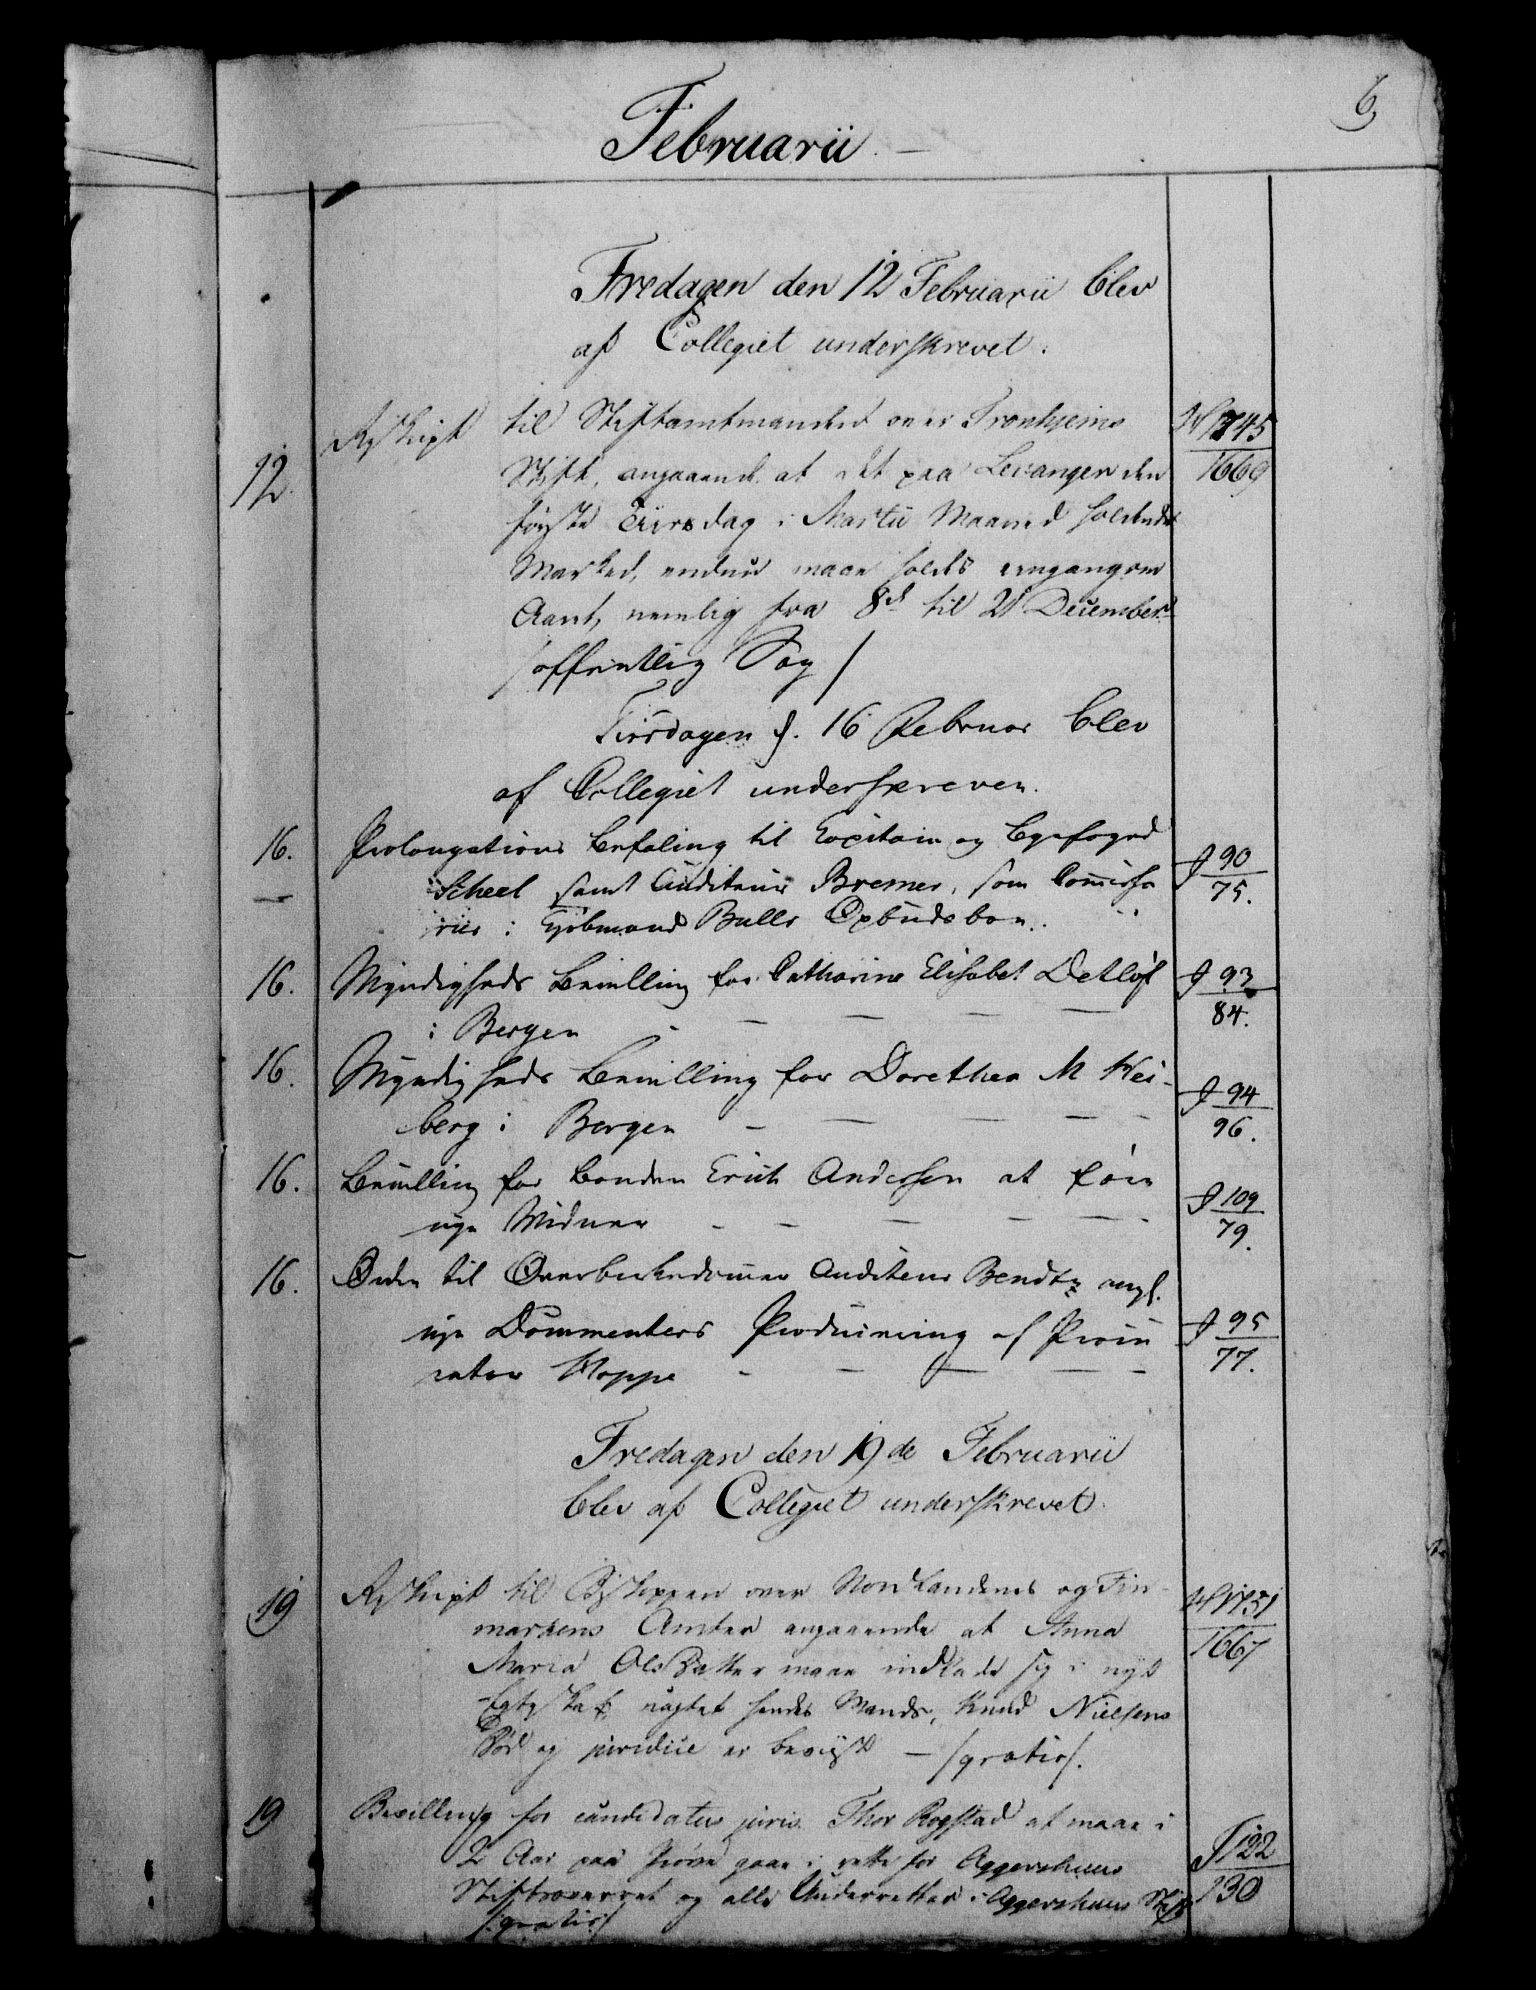 6
Februarii
Fredagen den 12 Februarii blev
af Collegiet underskrevet.
12. Rescript til Stiftamtmanden over Tronhjems W 1745
Stift, angaaende at det paa Levanger den 1669
første Tiirsdag i Martii Maaned holdende
Marked, endnu maae holdes eengang om
Aaret, nemlig fra 8d til 21 December
/offentlig Sag/
Tiirsdagen d. 16 Februar blev
af Collegiet underskreven.
16. Prolongations Befaling til Capitain og Byefoged J 90
Scheel samt Auditeur Bremer, som Commissa 75.
rier i Kjøbmand Bulls Opbudsboe.
16. Myndigheds Bevilling for Catharine Elisabet Detløf J 93
i Bergen 84.
16. Myndigheds Bevilling for Dorethea M Hei- J 94
berg i Bergen 96.
16. Bevilling for Bonden Erich Andersen at føre J 109
nye Vidner 79.
16. Ordre til Overbirkedommer Auditeur Bendtz angl.
nye Documenters Producering af Procu J 95
rator Hoppe 77.
Fredagen den 19de Februarii
blev af Collegiet underskrevet
19 Rescript til Biskoppen over Nordlandenes og Fin- W 1751
markens Amter angaaende at Anna 1667
Maria Olsdatter maae indlade sig i nyt
Egteskab uagtet hendes Mands, Knud Nielsens
Død ej juridice er beviist — /gratis/.
19 Bevilling for candidatus juris Thor Rogstad at maae i
2 Aar paa Prøve gaae i rette for Aggershuus J 122
Stiftsoverret og alle Underretter i Aggershuus Stift 130
/gratis/